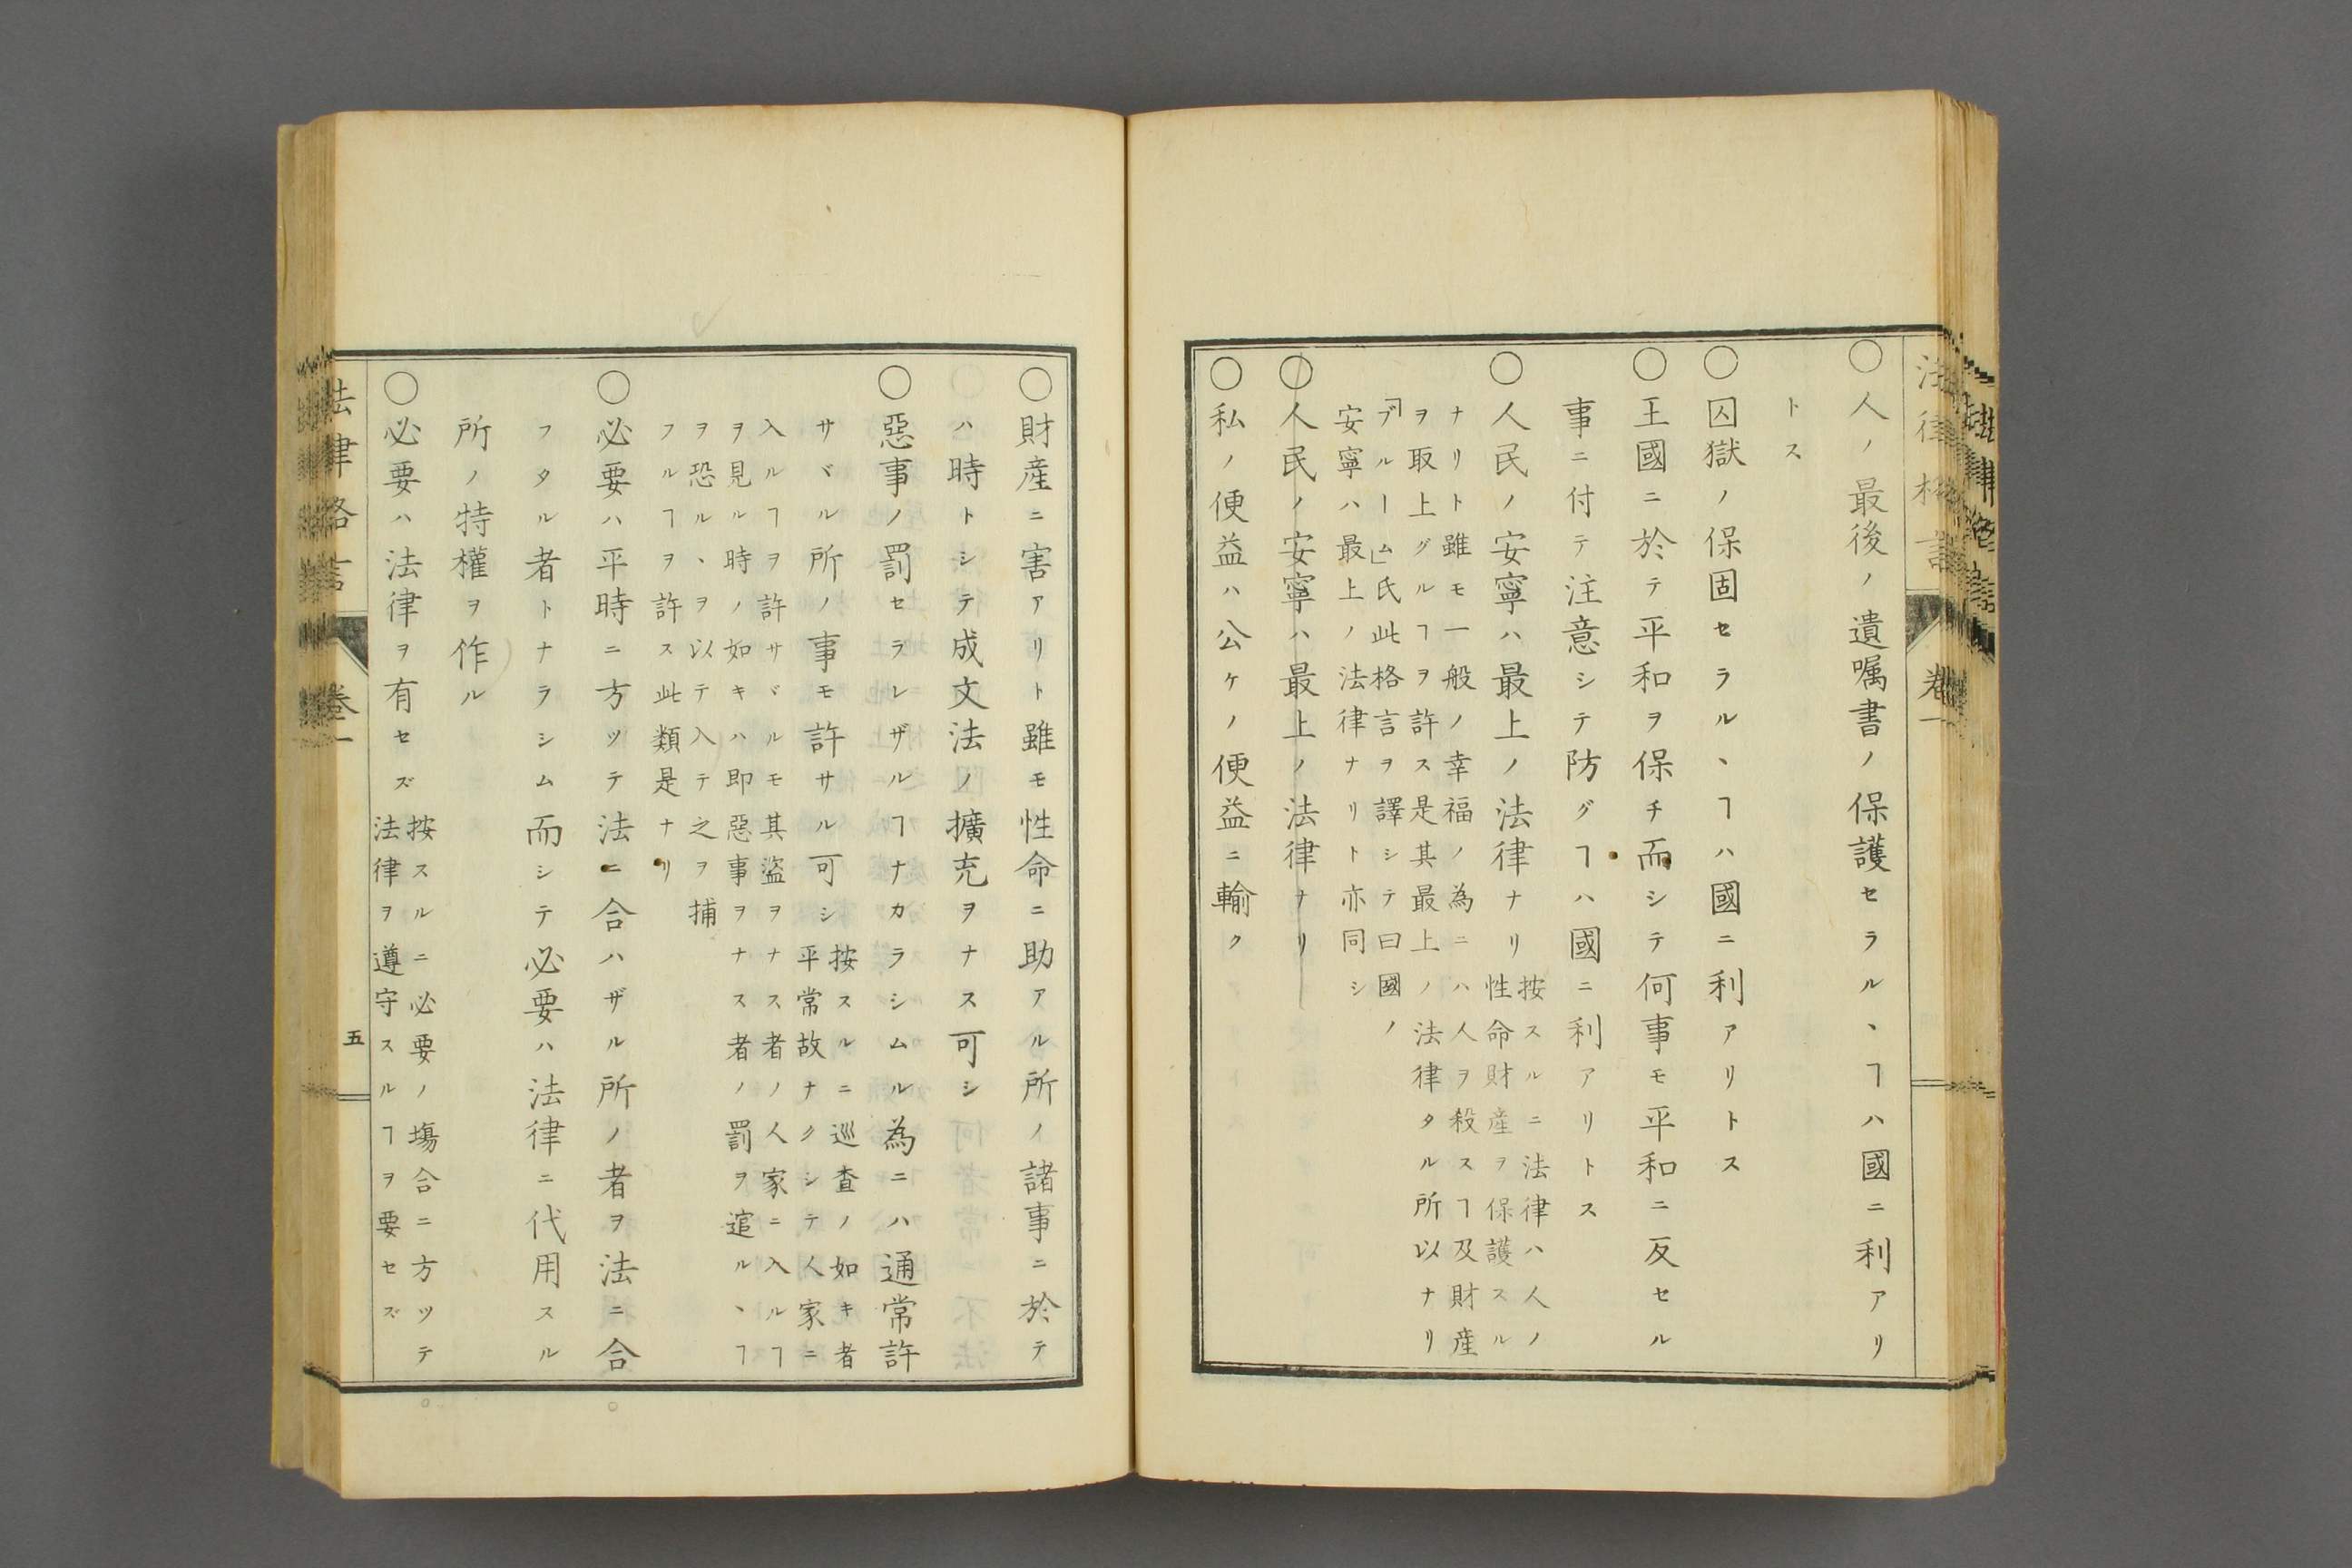 法律格言
卷一
○人ノ最後ノ遺嘱書ノ保護セラル丶ヿハ國ニ利アリ
トス
○囚獄ノ保固セラル丶ヿハ國ニ利アリトス
○王國ニ於テ平和ヲ保チ而シテ何事モ平和ニ反セル
事ニ付テ注意シテ防グヿハ國ニ利アリトス
○人民ノ安寧ハ最上ノ法律ナリ
按スルニ法律ハ人ノ
性命財産ヲ保護スル
ナリト雖モ一般ノ幸福ノ為ニハ人ヲ殺スヿ及財産
ヲ取上グルヿヲ許ス是其最上ノ法律タル所以ナリ
「ブルーム」氏此格言ヲ譯シテ曰國ノ
安寧ハ最上ノ法律ナリト亦同シ
○人民ノ安寧ハ最上ノ法律ナリ
○私ノ便益ハ公ケノ便益ニ輸ク
○財産ニ害アリト雖モ性命ニ助アル所ノ諸事ニ於テ
ハ時トシテ成文法ノ擴充ヲナス可シ
○惡事ノ罰セラレザルヿナカラシムル為ニハ通常許
サヾル所ノ事モ許サル可シ
按スルニ巡査ノ如キ者
平常故ナクシテ人家ニ
入ルヿヲ許サヾルモ其盜ヲナス者ノ人家ニ入ルヿ
ヲ見ル時ノ如キハ即惡事ヲナス者ノ罰ヲ逭ル丶ヿ
ヲ恐ル丶ヲ以テ入テ之ヲ捕
フルヿヲ許ス此類是ナリ
○必要ハ平時ニ方ツテ法ニ合ハザル所ノ者ヲ法ニ合
フタル者トナラシム而シテ必要ハ法律ニ代用スル
所ノ特權ヲ作ル
○必要ハ法律ヲ有セズ
按スルニ必要ノ塲合ニ方ツテ
法律ヲ遵守スルヿヲ要セズ
法律格言
卷一
五